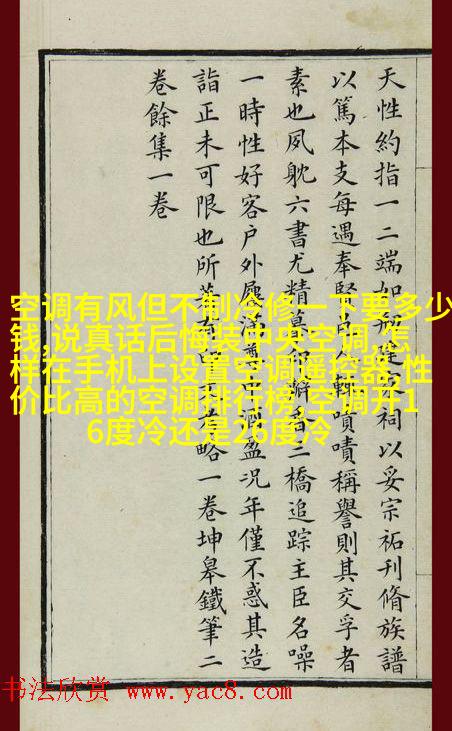 天性約指一二端如祠以妥宗祏刊脩族譜
以篤本支每遇奉賢人輒嘖嘖稱譽則其交孚者
素也夙躭六書尤精三橋追踪主臣名噪
一時性好客户外屨盈況年僅不惑其造
詣正未可限也所略一卷坤皋鐵筆二
卷餘集一卷
空调有风但不制冷修一下要多少
钱,说真话后悔装中央空调,怎
样在手机上设置空调遥控器,性
价比高的空调排行榜,空调开1
6度冷还是26度冷
书法欣赏 www.yac8.com